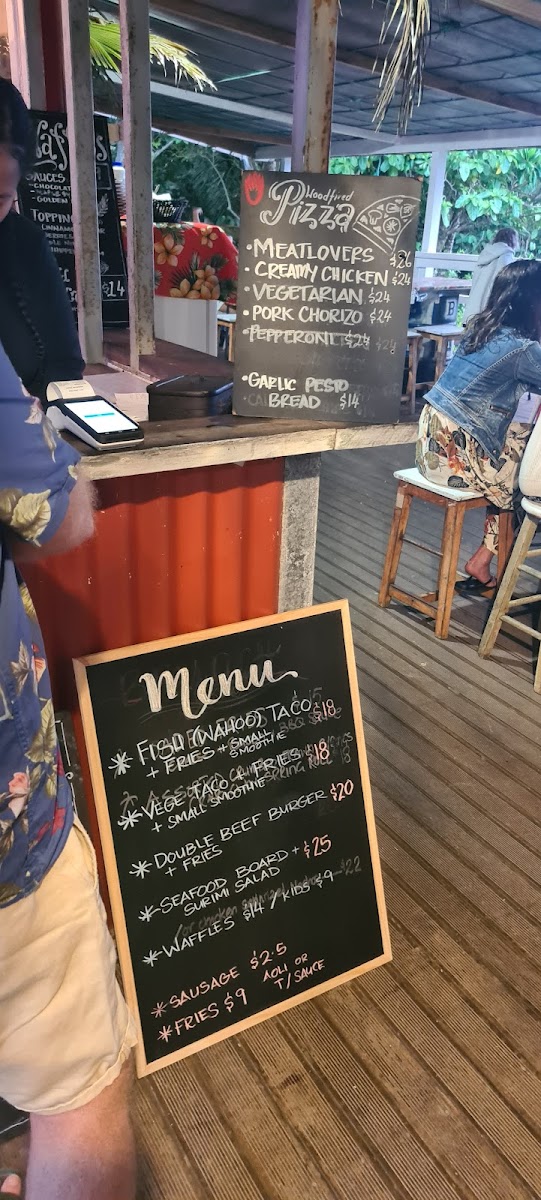 SAUCES
- CHOCOLAT
- GOLDEN
TOPPIN
$14
Woodfired
Pizza
• MEATLOVERS $26
• CREAMY CHICKEN $24
• VEGETARIAN $24
• PORK CHORIZO $24
• PEPPERONI $24
• GARLIC PESTO
BREAD $14
Menu
* FISH (WAHOO) TACO $18
+ FRIES + SMALL
SMOOTHIE
* VEGE TACO + FRIES $18
+ SMALL SMOOTHIE
* DOUBLE BEEF BURGER $20
+ FRIES
* SEAFOOD BOARD + $25
SURIMI SALAD
* WAFFLES $14 / KIDS $9
* SAUSAGE $2.5
* FRIES $9 AOLI OR
T/SAUCE